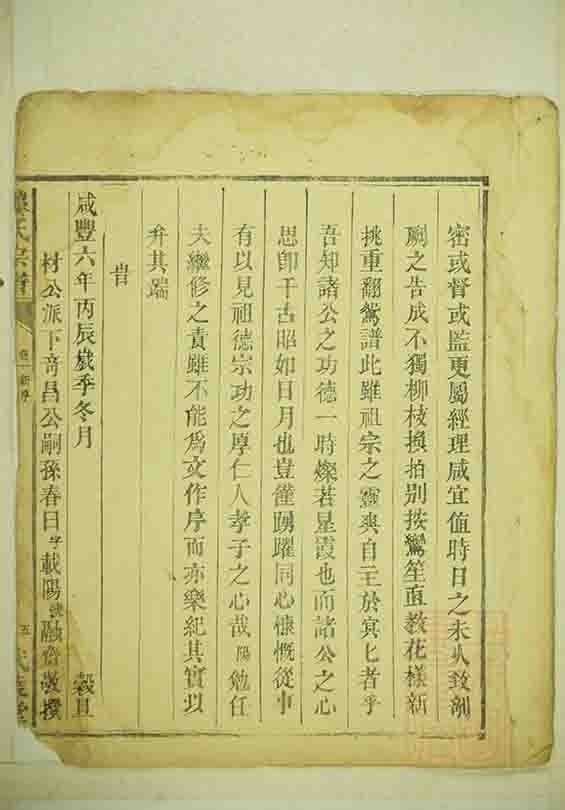 密或督或監更屬經理咸宜值時日之未久致剞
劂之告成不獨柳枝換拍別按鸞笙直教花樣新
挑重翻鴛譜此雖祖宗之靈爽自主於冥匕者乎
吾知諸公之功德一時燦若星霞也而諸公之心
思卽千古昭如日月也豈僅踴躍同心慷慨從事
有以見祖德宗功之厚仁人孝子之心哉陽勉任
夫繼修之責雖不能爲文作序而亦樂紀其實以
弁其端
旹
咸豐六年丙辰歲季冬月 穀旦
材公派下奇昌公嗣孫春日字載陽號融齋敬撰
氏宗譜 卷一 新序 五